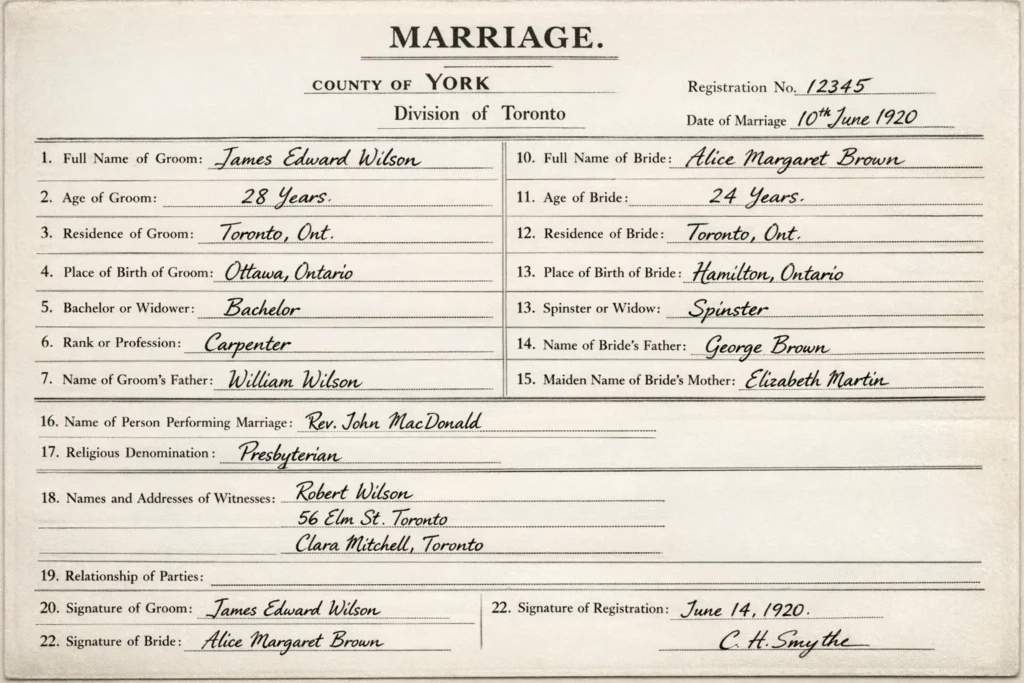 MARRIAGE.
COUNTY OF YORK
Registration No. 12345
Division of Toronto
Date of Marriage 10th June 1920
1. Full Name of Groom: James Edward Wilson
10. Full Name of Bride: Alice Margaret Brown
2. Age of Groom: 28 Years.
11. Age of Bride: 24 Years.
3. Residence of Groom: Toronto, Ont.
12. Residence of Bride: Toronto, Ont.
4. Place of Birth of Groom: Ottawa, Ontario
13. Place of Birth of Bride: Hamilton, Ontario
5. Bachelor or Widower: Bachelor
13. Spinster or Widow: Spinster
6. Rank or Profession: Carpenter
14. Name of Bride's Father: George Brown
7. Name of Groom's Father: William Wilson
15. Maiden Name of Bride's Mother: Elizabeth Martin
16. Name of Person Performing Marriage: Rev. John MacDonald
17. Religious Denomination: Presbyterian
18. Names and Addresses of Witnesses: Robert Wilson
56 Elm St. Toronto
Clara Mitchell, Toronto
19. Relationship of Parties:
20. Signature of Groom: James Edward Wilson
22. Signature of Registration: June 14, 1920.
22. Signature of Bride: Alice Margaret Brown
C. H. Smythe